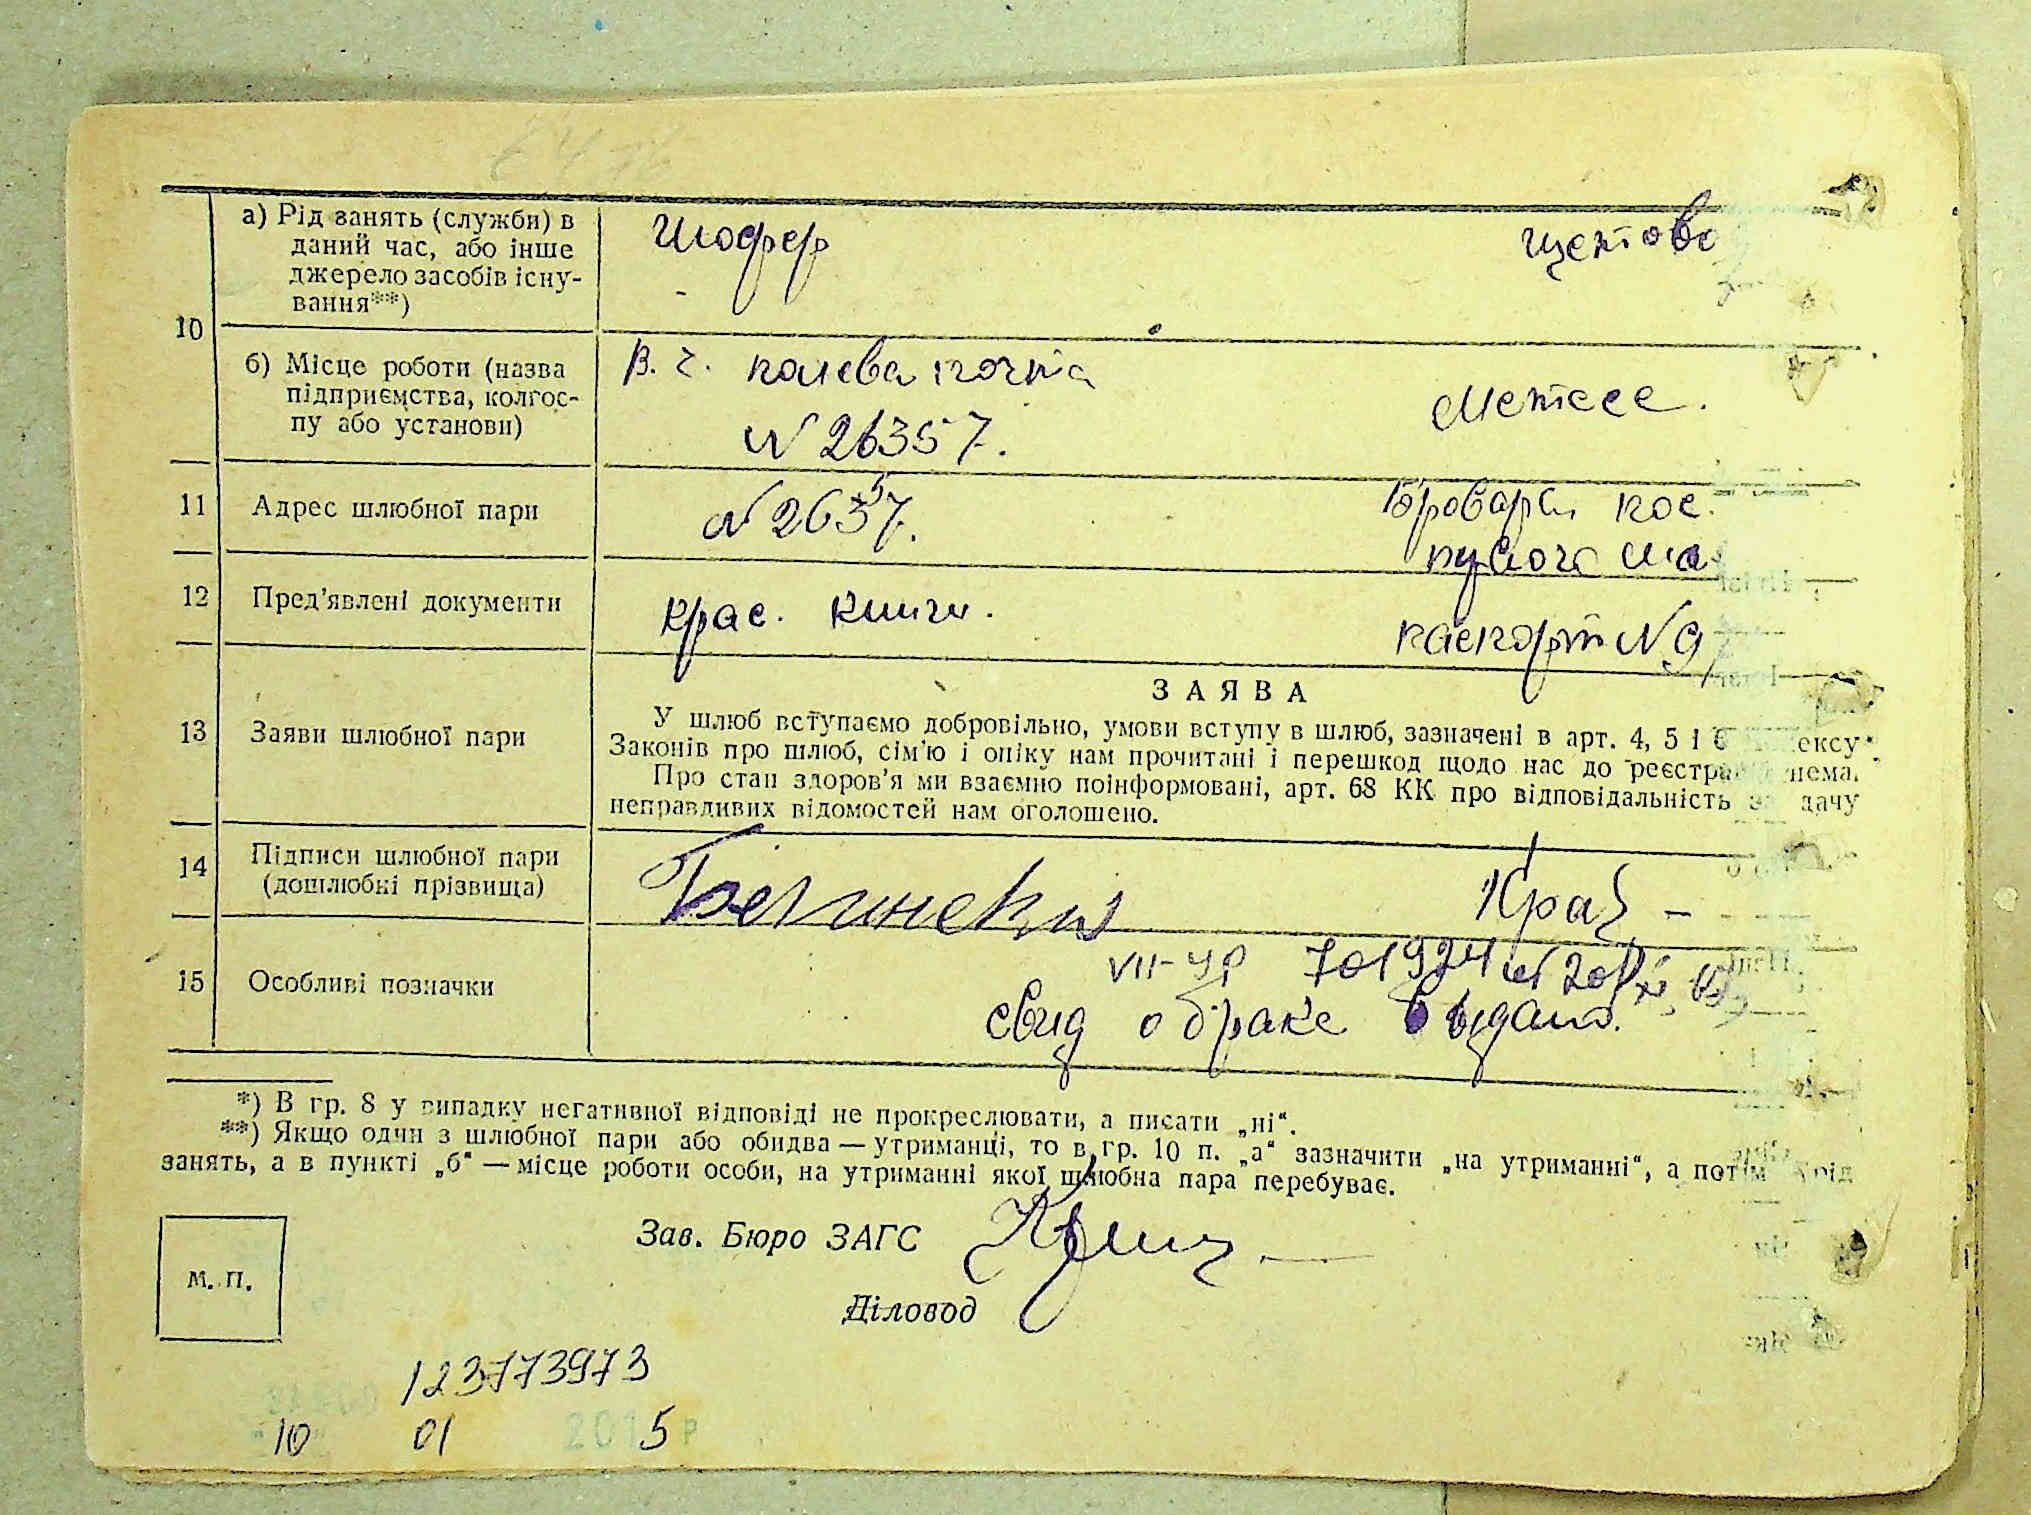 а) Рід занять (служби) в
даний час, або інше
джерело засобів існу-
вання**)
Шофер
щетово
10
б) Місце роботи (назва
підприємства, колгос-
пу або установи)
В. ч. полева почта
N 26357.
11
Адрес шлюбної пари
N 26357.
Бровари пос.
12
Пред'явлені документи
крас. книги.
паспорт N 9
13
Заяви шлюбної пари
ЗАЯВА
У шлюб вступаємо добровільно, умови вступу в шлюб, зазначені в арт. 4, 5 і 6 ексу
Законів про шлюб, сім'ю і опіку нам прочитані і перешкод щодо нас до реєстра нема.
Про стан здоров'я ми взаємно поінформовані, арт. 68 КК про відповідальність за дачу
неправдивих відомостей нам оголошено.
14
Підписи шлюбної пари
(дошлюбні прізвища)
Белинский
Крав
15
Особливі позначки
VII-ЧР 701924
свид о браке выдано.
*) В гр. 8 у випадку негативної відповіді не прокреслювати, а писати „ні“.
**) Якщо один з шлюбної пари або обидва — утриманці, то в гр. 10 п. „а“ зазначити „на утриманні“, а потім рід
занять, а в пункті „б“ — місце роботи особи, на утриманні якої шлюбна пара перебуває.
Зав. Бюро ЗАГС
М. П.
Діловод
123773973
10 01 2015 р